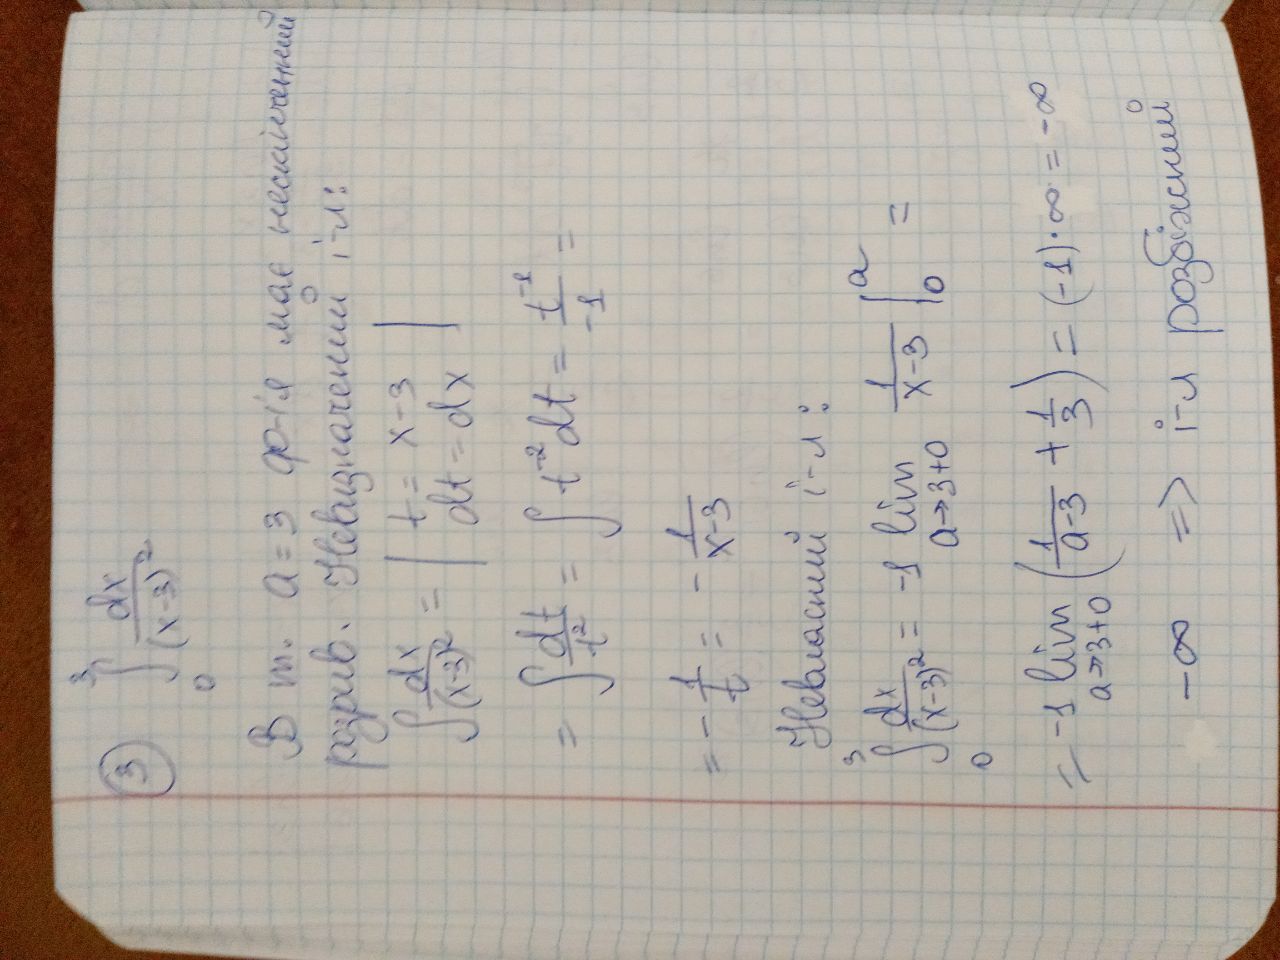 ③ ∫₀³ dx/(x-3)²
В т. a=3 ф-ія має нескінченний
розрив. Невизначений і-л:
∫ dx/(x-3)² = | t = x-3 dt = dx |
= ∫ dt/t² = ∫ t⁻² dt = t⁻¹/-1 =
= - 1/t = - 1/(x-3)
Невласний і-л:
∫₀³ dx/(x-3)² = -1 lim a→3+0 1/(x-3) |₀ᵃ =
= -1 lim a→3+0 (1/(a-3) + 1/3) = (-1)·∞ = -∞
-∞ => і-л розбіжний